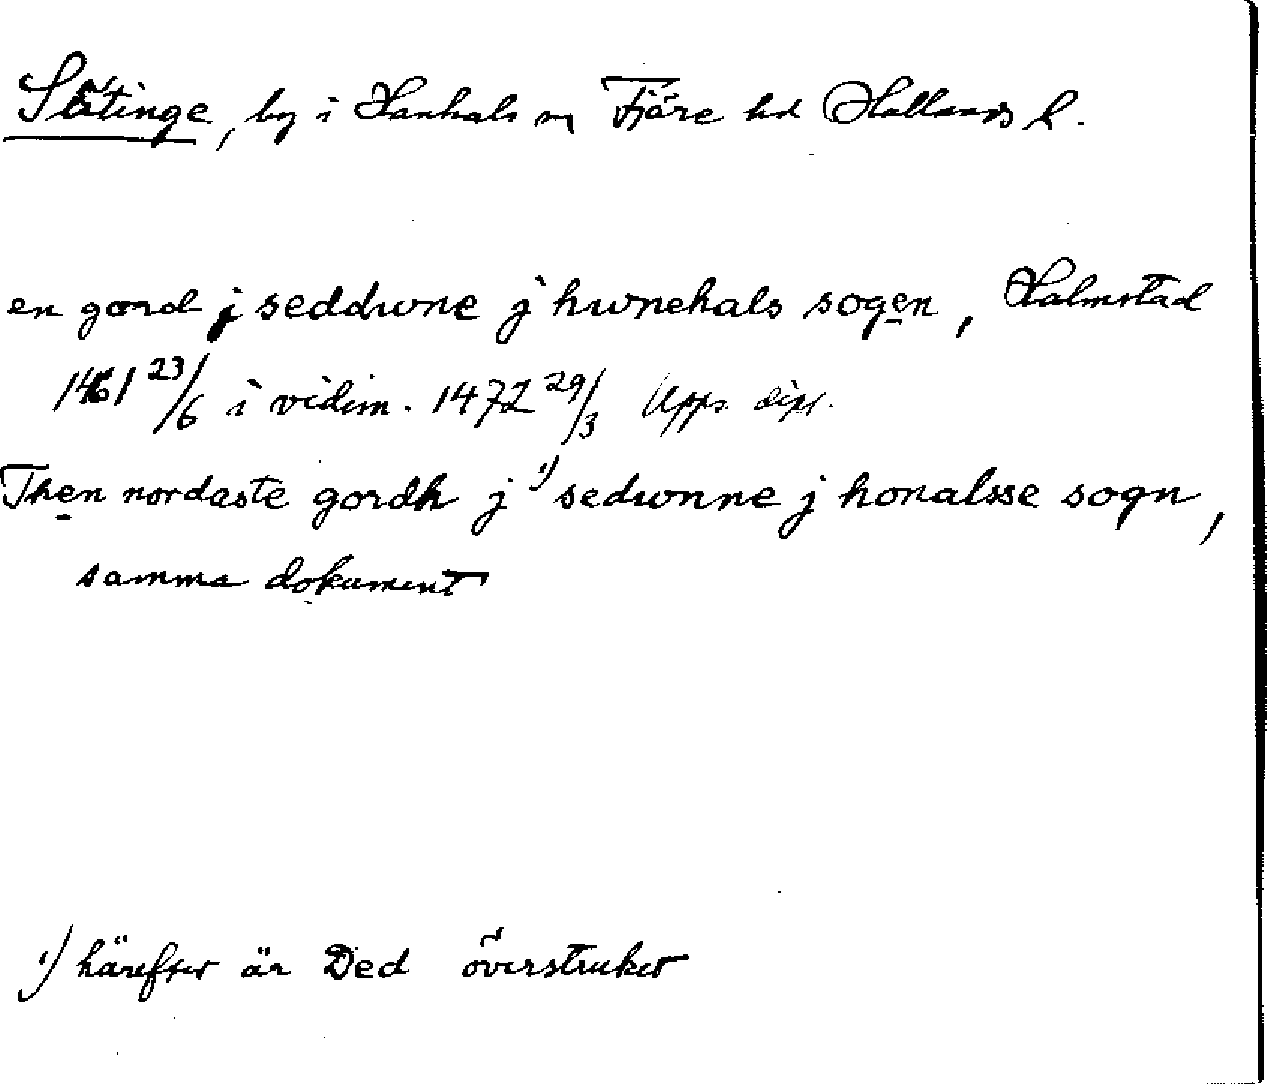 Slätinge, by i Hanhals sn Fjäre hd Hallands l.
en gord j seddwne j hwnehals sogen, Halmstad
1461 23/6 i vidim. 1472 29/3 Upps dipl.
Then nordaste gordh j ¹⁾ sedwnne j honalsse sogn,
samma dokument
¹⁾ härefter är Ded överstruket